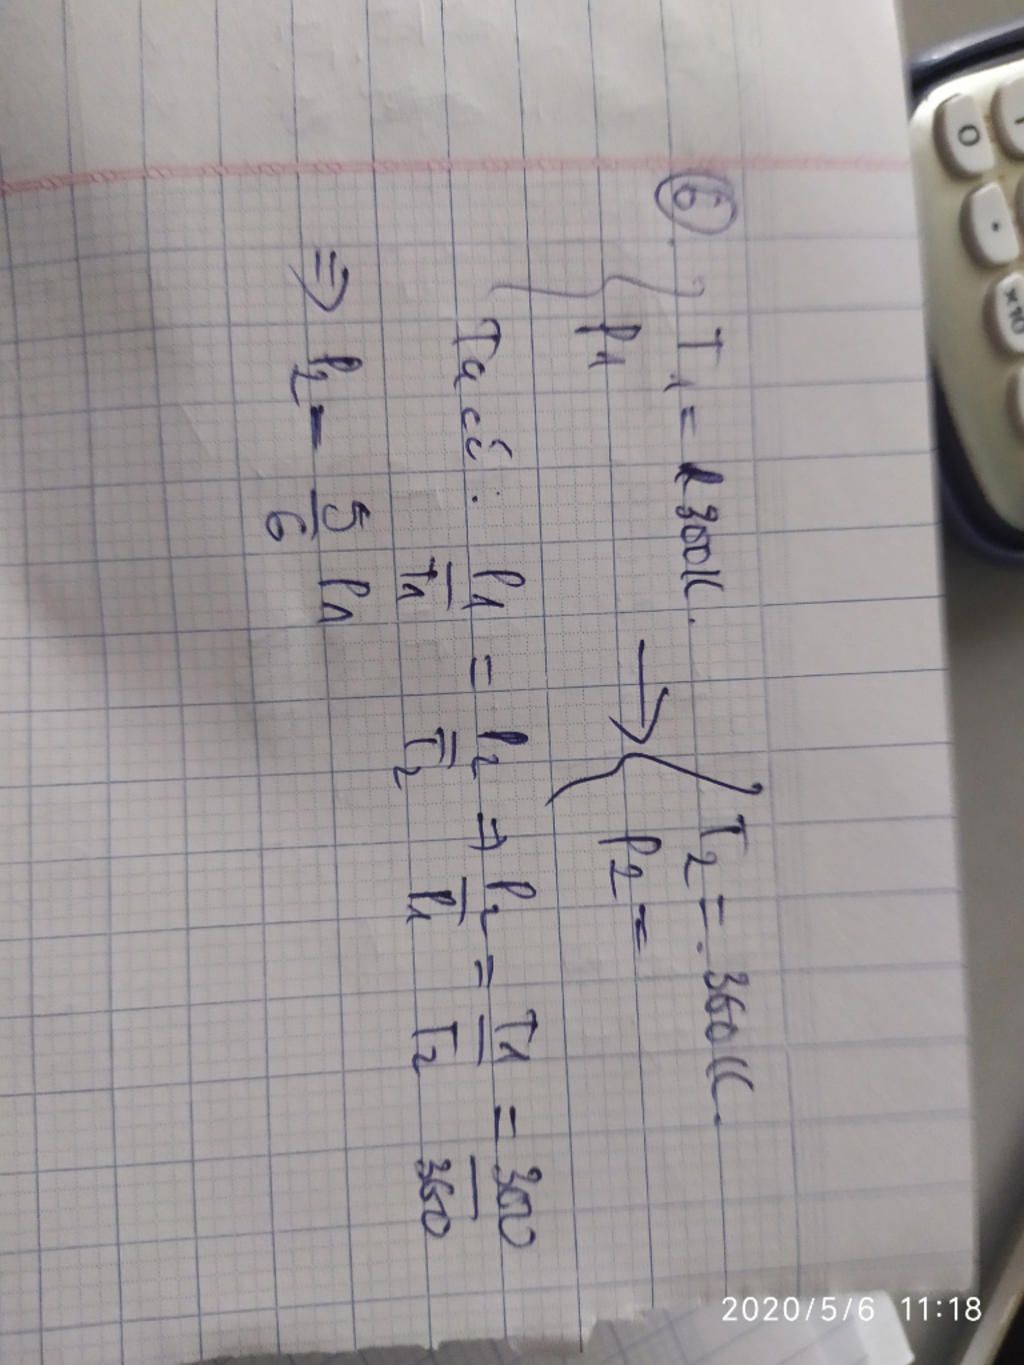 6. T1 = 300K. → T2 = 360K.
P1 P2 =
Ta có: P1/T1 = P2/T2 ⇒ P2/P1 = T1/T2 = 300/360
⇒ P2 = 5/6 P1
0 . x10
2020/5/6 11:18